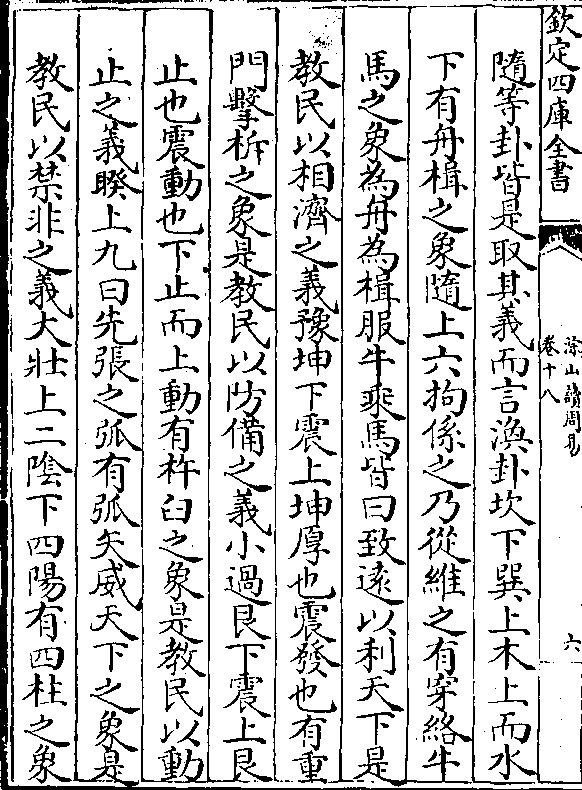 欽定四庫全書
涂山讀周易
卷十八
六
隨等卦皆是取其義而言渙卦坎下巽上木上而水
下有舟楫之象隨上六拘係之乃從維之有穿絡牛
馬之象為舟為楫服牛乘馬皆曰致逺以利天下是
教民以相濟之義豫坤下震上坤厚也震發也有重
門擊柝之象是教民以防備之義小過艮下震上艮
止也震動也下止而上動有杵臼之象是教民以動
止之義睽上九曰先張之弧有弧矢威天下之象是
教民以禁非之義大壯上二陰下四陽有四柱之象